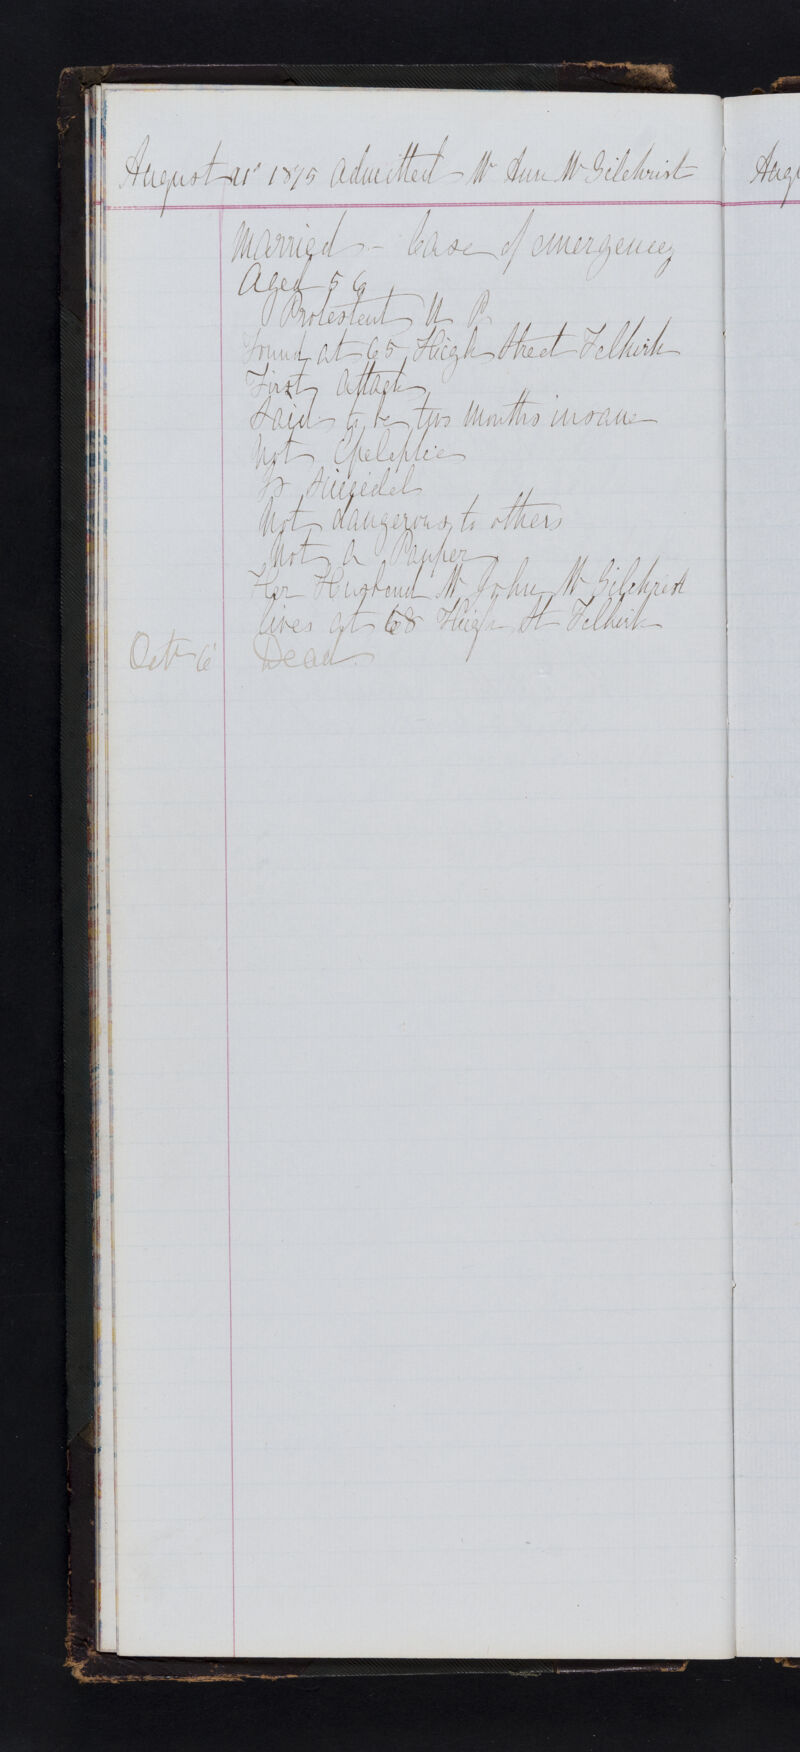 August 21st 1875 Admitted Mrs Ann McGilchrist
Married - Case of emergency
Aged 56
Protestent U P
Found at 65 High Street Felkirk
First attack
Said to be two months insane
Not Epeleptic
Is Suicidel
Not dangerous to others
Not a Pauper
Her Husbend Mr John McGilchrist
lives at 68 High St Felkirk
Oct 6 Dead
Augu